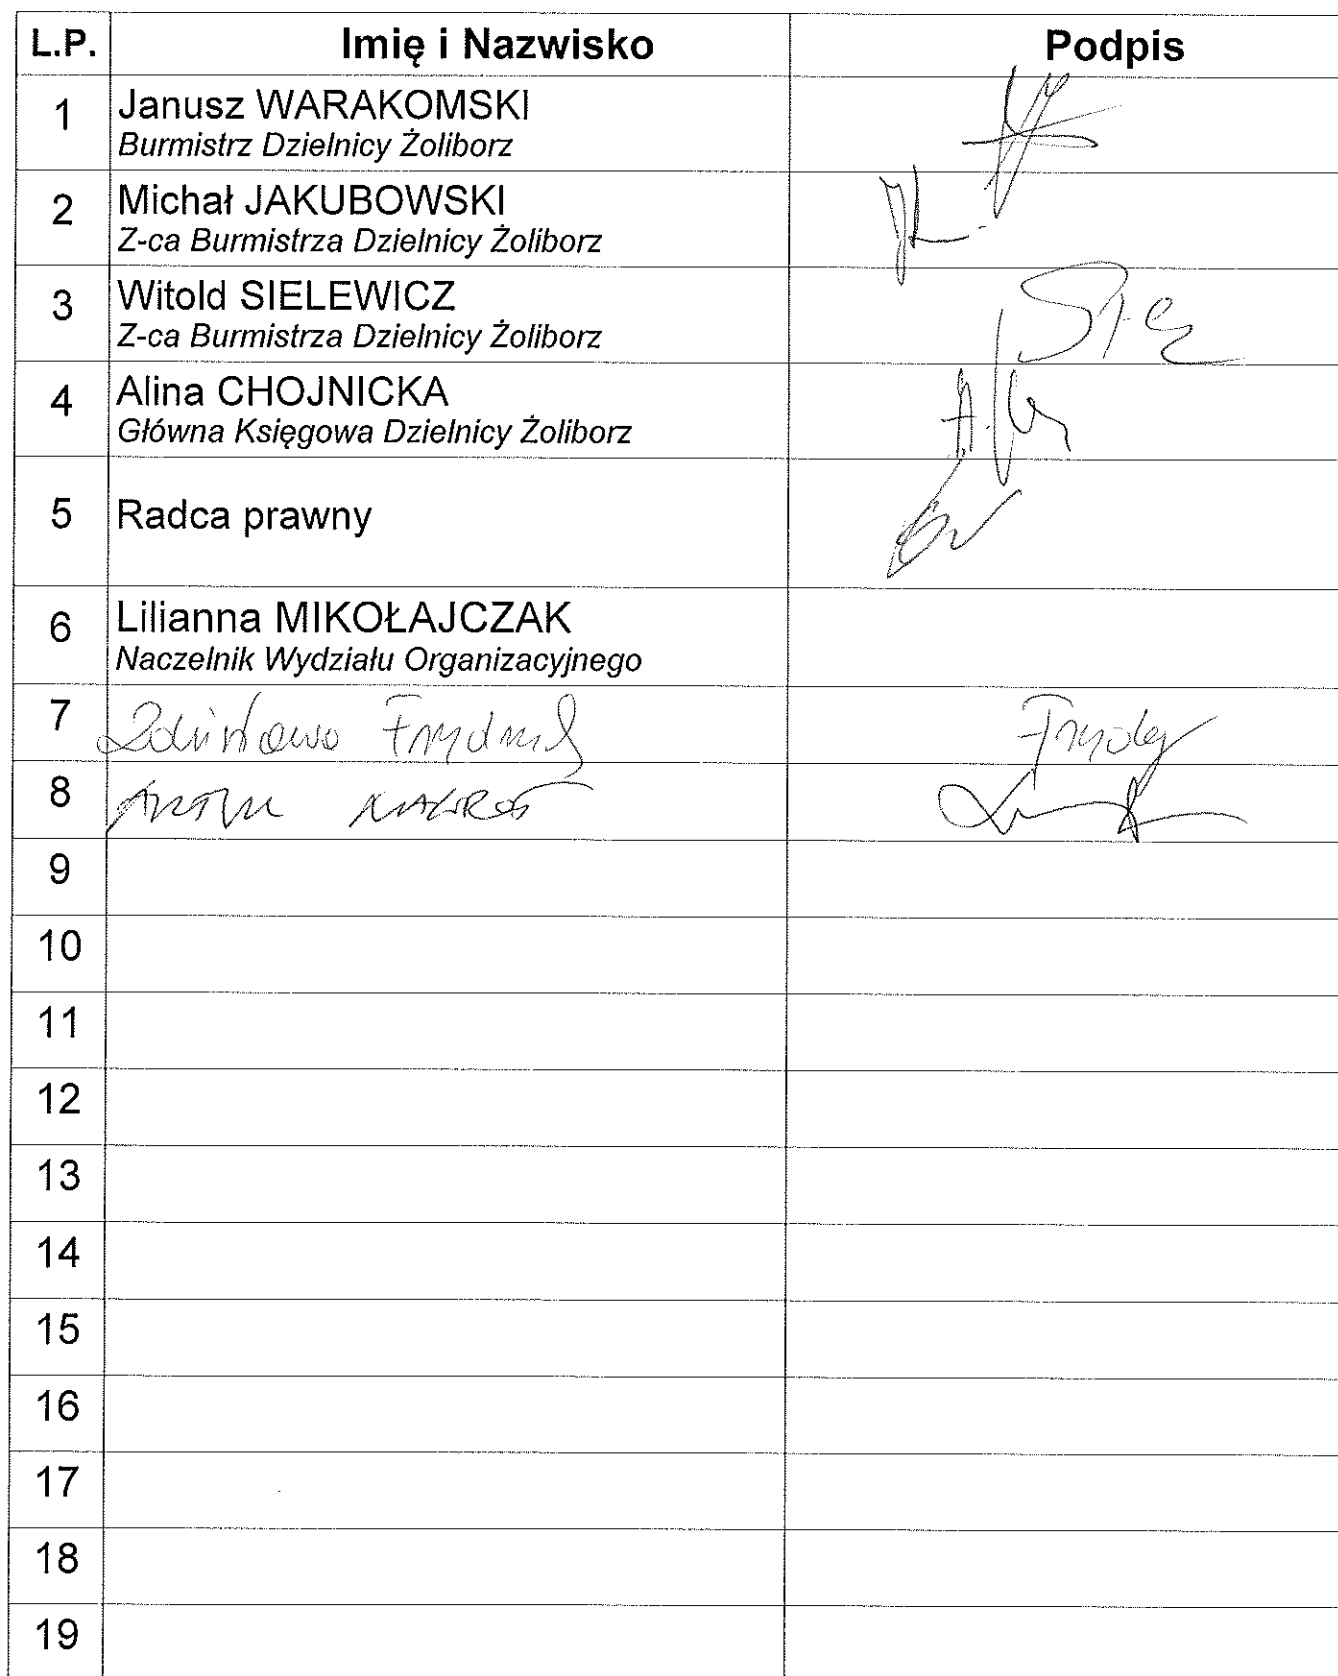 L.P. Imię i Nazwisko Podpis
1 Janusz WARAKOMSKI
Burmistrz Dzielnicy Żoliborz
2 Michał JAKUBOWSKI
Z-ca Burmistrza Dzielnicy Żoliborz
3 Witold SIELEWICZ
Z-ca Burmistrza Dzielnicy Żoliborz
4 Alina CHOJNICKA
Główna Księgowa Dzielnicy Żoliborz
5 Radca prawny
6 Lilianna MIKOŁAJCZAK
Naczelnik Wydziału Organizacyjnego
7
8
9
10
11
12
13
14
15
16
17
18
19